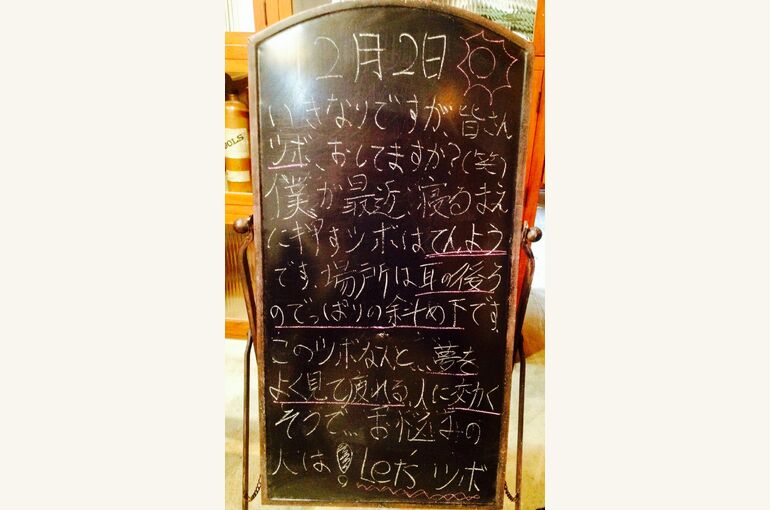 12月2日
いきなりですが、皆さん
ツボ、おしてますか?(笑)
僕が最近寝るまえ
に押すツボはてんよう
です。場所は耳の後ろ
のでっぱりの斜め下です。
このツボなんと、、、夢を
よく見て疲れる、人に効く
そうで、、、お悩みの
人は! Let's ツボ
OLS